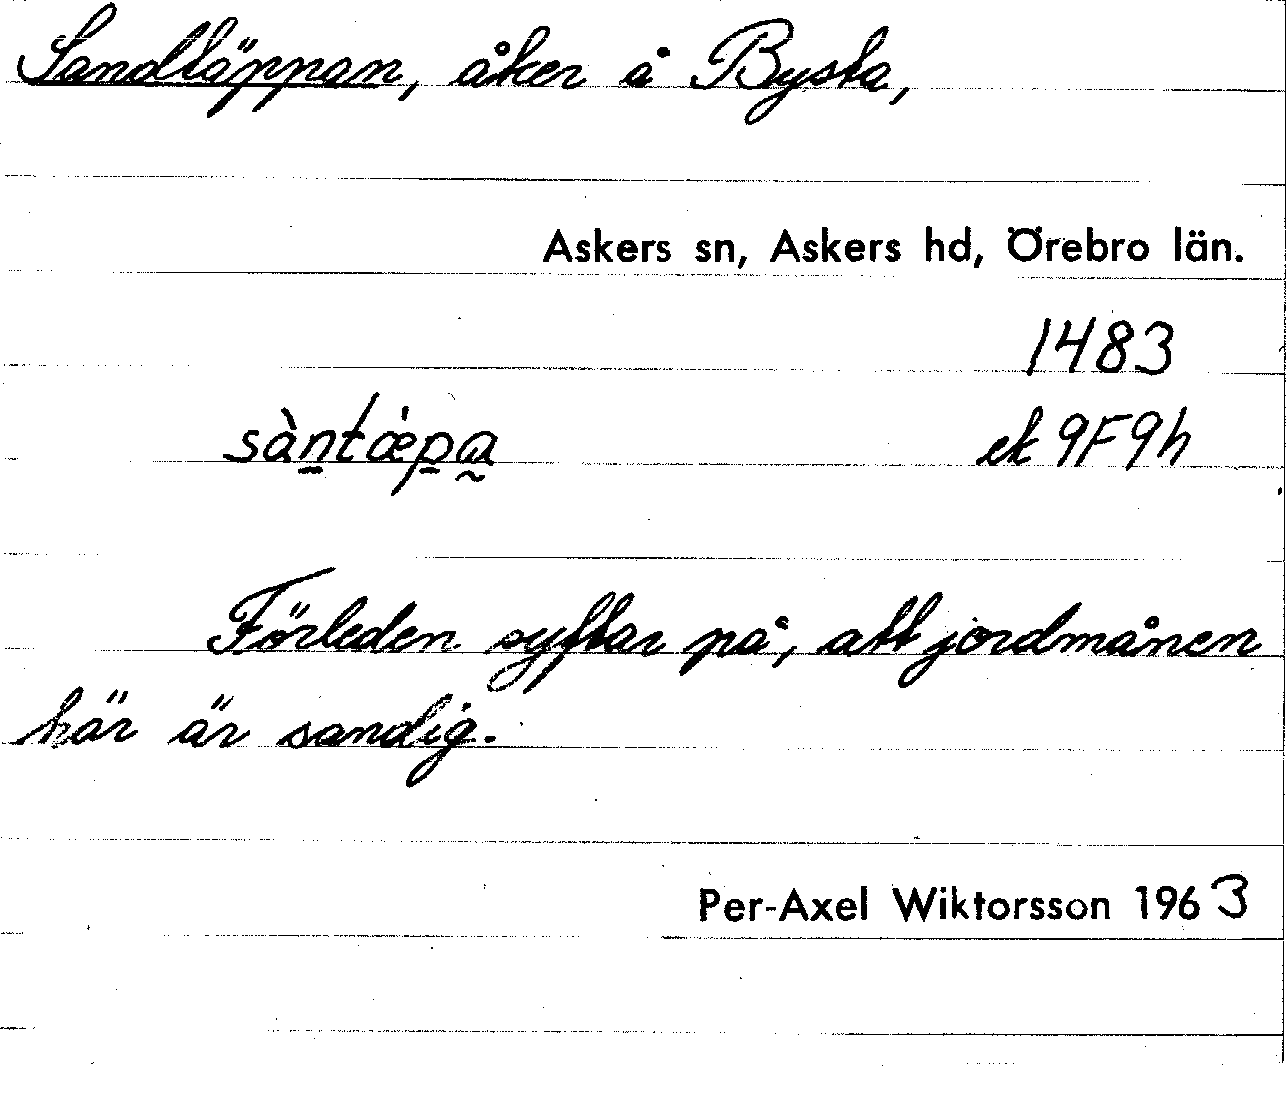 Sandtäppan, åker å Bysta,
Askers sn, Askers hd, Örebro län.
1483
sàn̲tǽp̲a̰ ek 9F9h
Förleden syftar på, att jordmånen
här är sandig.
Per-Axel Wiktorsson 1963